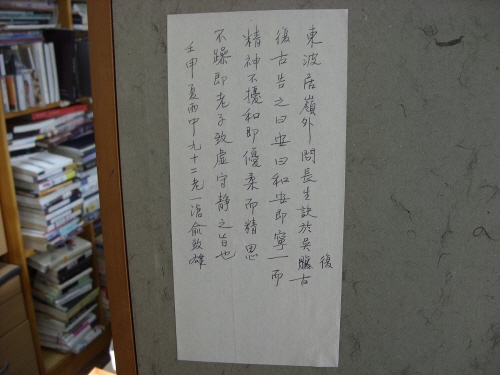 東波居嶺外問長生訣於吳騰古
復
復古告之曰安曰和安即寧一而
精神不擾和即優柔而精思
不躁即老子致虛守靜之旨也
壬申夏雨中九十二老一滄俞致雄